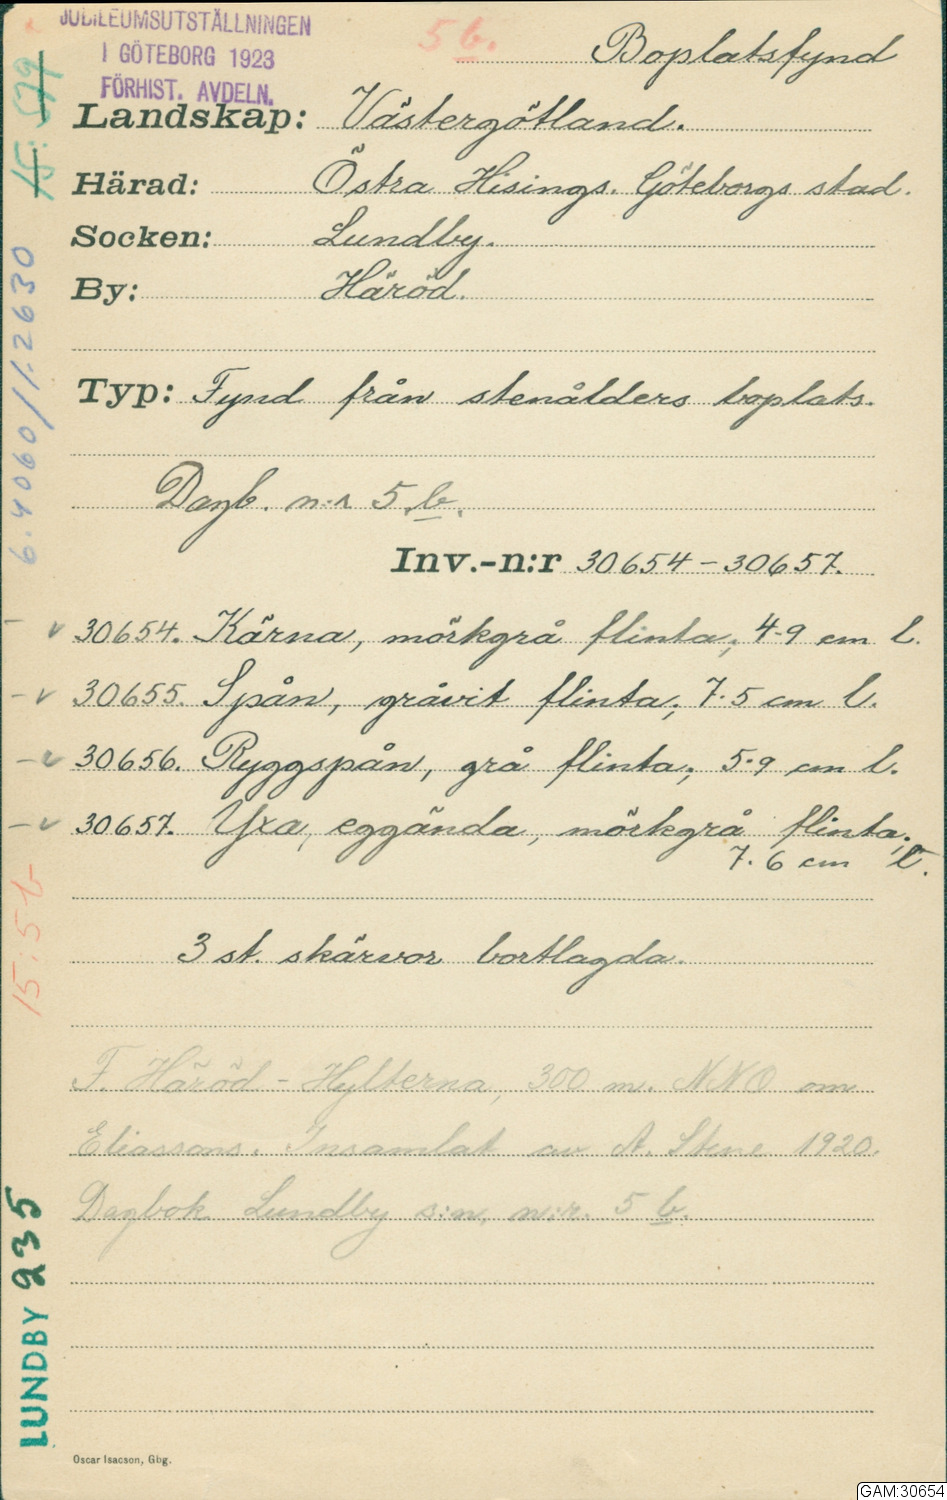 JUBILEUMSUTSTÄLLNINGEN
I GÖTEBORG 1923
FÖRHIST. AVDELN.
5 b.
Boplatsfynd
Landskap: Västergötland.
Härad: Östra Hisings. Göteborgs stad.
Socken: Lundby.
By: Häröd.
Typ: Fynd från stenålders boplats.
Dagb. n:r 5 b.
Inv.-n:r 30654–30657.
30654. Kärna, mörkgrå flinta; 4.9 cm l.
30655. Spån, gråvit flinta; 7.5 cm l.
30656. Ryggspån, grå flinta; 5.9 cm l.
30657. Yxa, eggända, mörkgrå flinta;
7.6 cm l.
3 st. skärvor bortlagda.
F. Häröd - Hylterna, 300 m. NNO om
Eliassons. Insamlat av A. Stene 1920.
Dagbok Lundby s:n, n:r. 5 b.
15: 579
6.4060/1:2630
15:5 b
LUNDBY 235
Oscar Isacson, Gbg.
GAM:30654